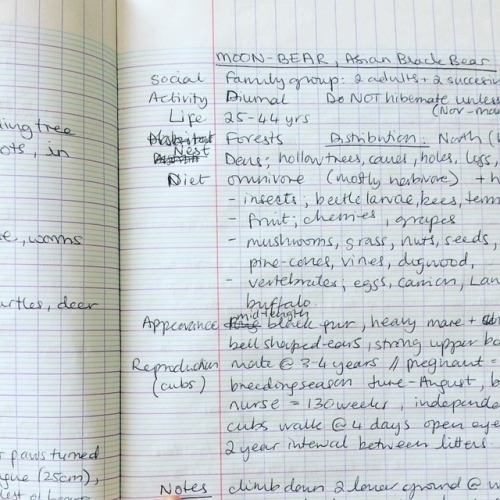 ing tree
ots, in
e, worms
urtles, deer
paws turned
gue (25cm),
MOON-BEAR, Asian Black Bear
Social Family group: 2 adults + 2 succesive
Activity Diurnal Do NOT hibernate unless
(Nov-ma
Life 25-44 yrs
Habitat Forests Distribution: North (
Nest Dens; hollow trees, caves, holes, logs,
Diet omnivore (mostly herbivore) + h
- insects, beetle larvae, bees, term
- fruit; cherries, grapes
- mushrooms, grass, nuts, seeds,
pine-cones, vines, dogwood,
- vertebrates; eggs, carrion,
buffalo.
mid-length
Appearance black fur, heavy mane +
bell shaped-ears, strong upper bo
Reproduction mate @ 3-4 years // pregnant =
(cubs) breeding season June-August, b
nurse = 130 weeks, independe
cubs walk @ 4 days open eye
2 year interval between litters.
Notes climb down 2 lower ground @ w